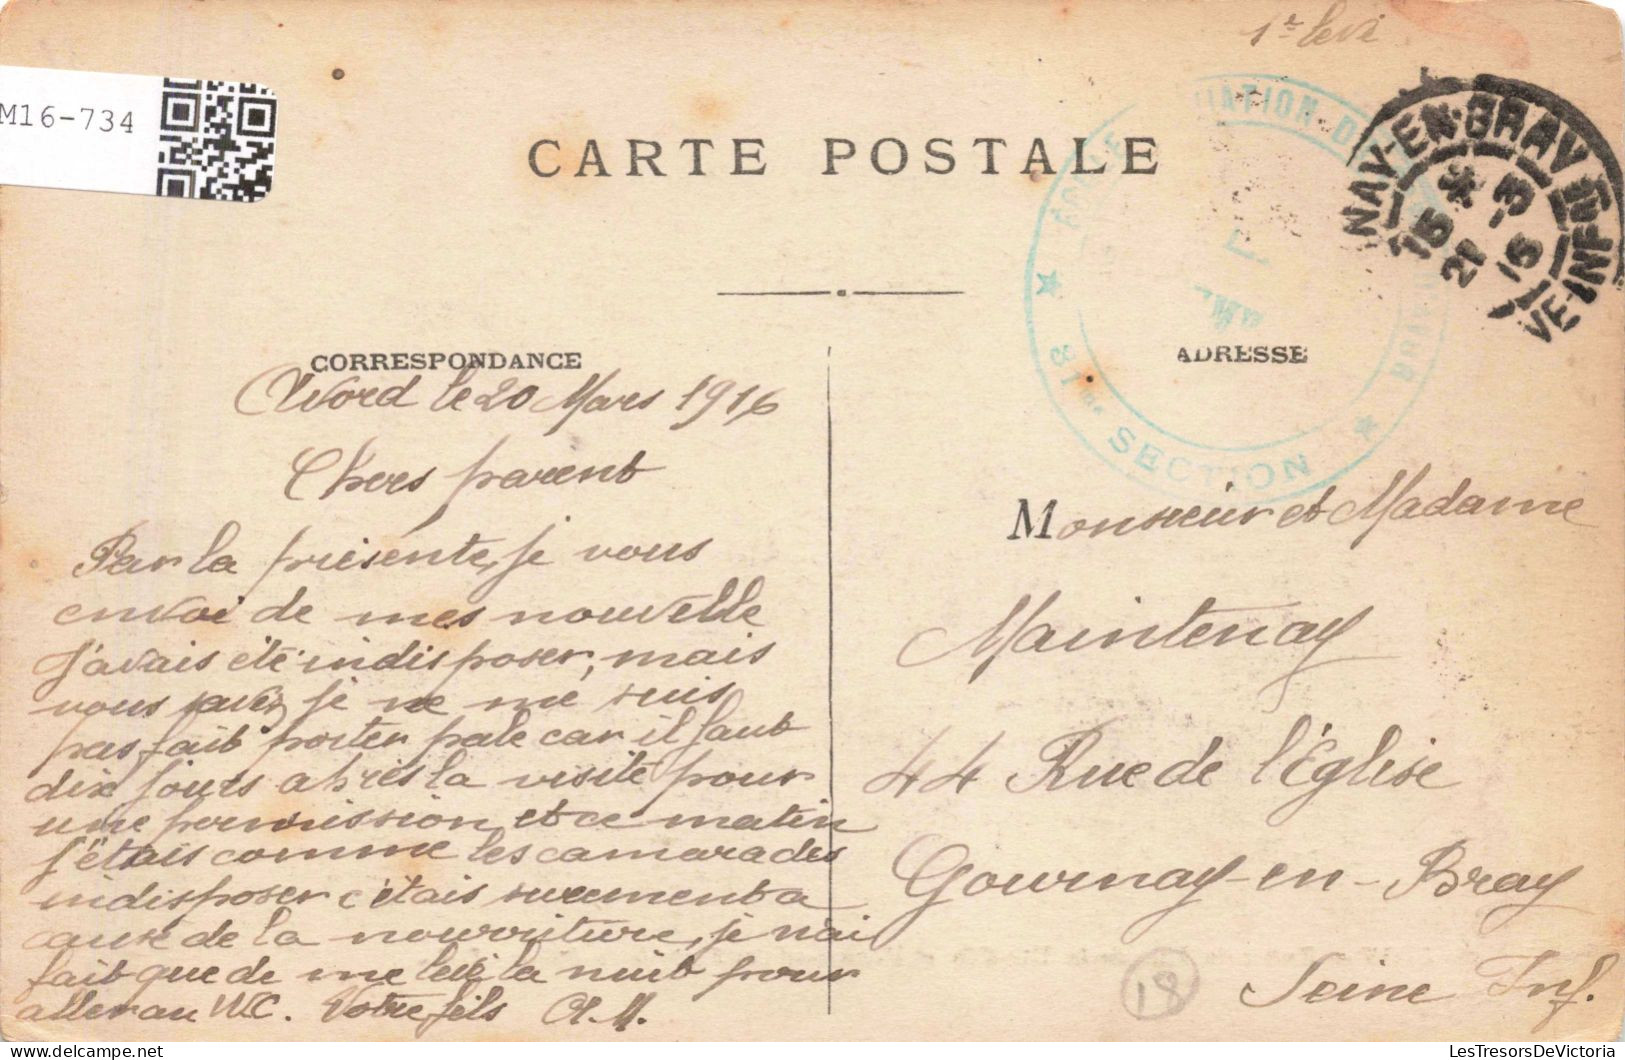 1re levé
M16-734
CARTE POSTALE
NAY-EN-BRAY
15 * 21 -3 15
VE-INFRE
ÉCOLE D'AVIATION D
81me SECTION
CORRESPONDANCE
ADRESSE
Avord le 20 Mars 1916
Chers parent
Par la présente, je vous
envoi de mes nouvelle
J'avais été indisposer, mais
vous savez je ne me suis
pas fait porter pale car il faut
dix jours ahrès la visite pour
une permission, et ce matin
j'étais comme les camarades
indisposer c'étais surement a
cause de la nourriture, je n'ai
fait que de me levé la nuit pour
aller au W.C. Votre fils A.M.
Monsieur et Madame
Maintenay
44 Rue de l'Église
Gournay-en-Bray
Seine Inf.
18
LesTresorsDeVictoria